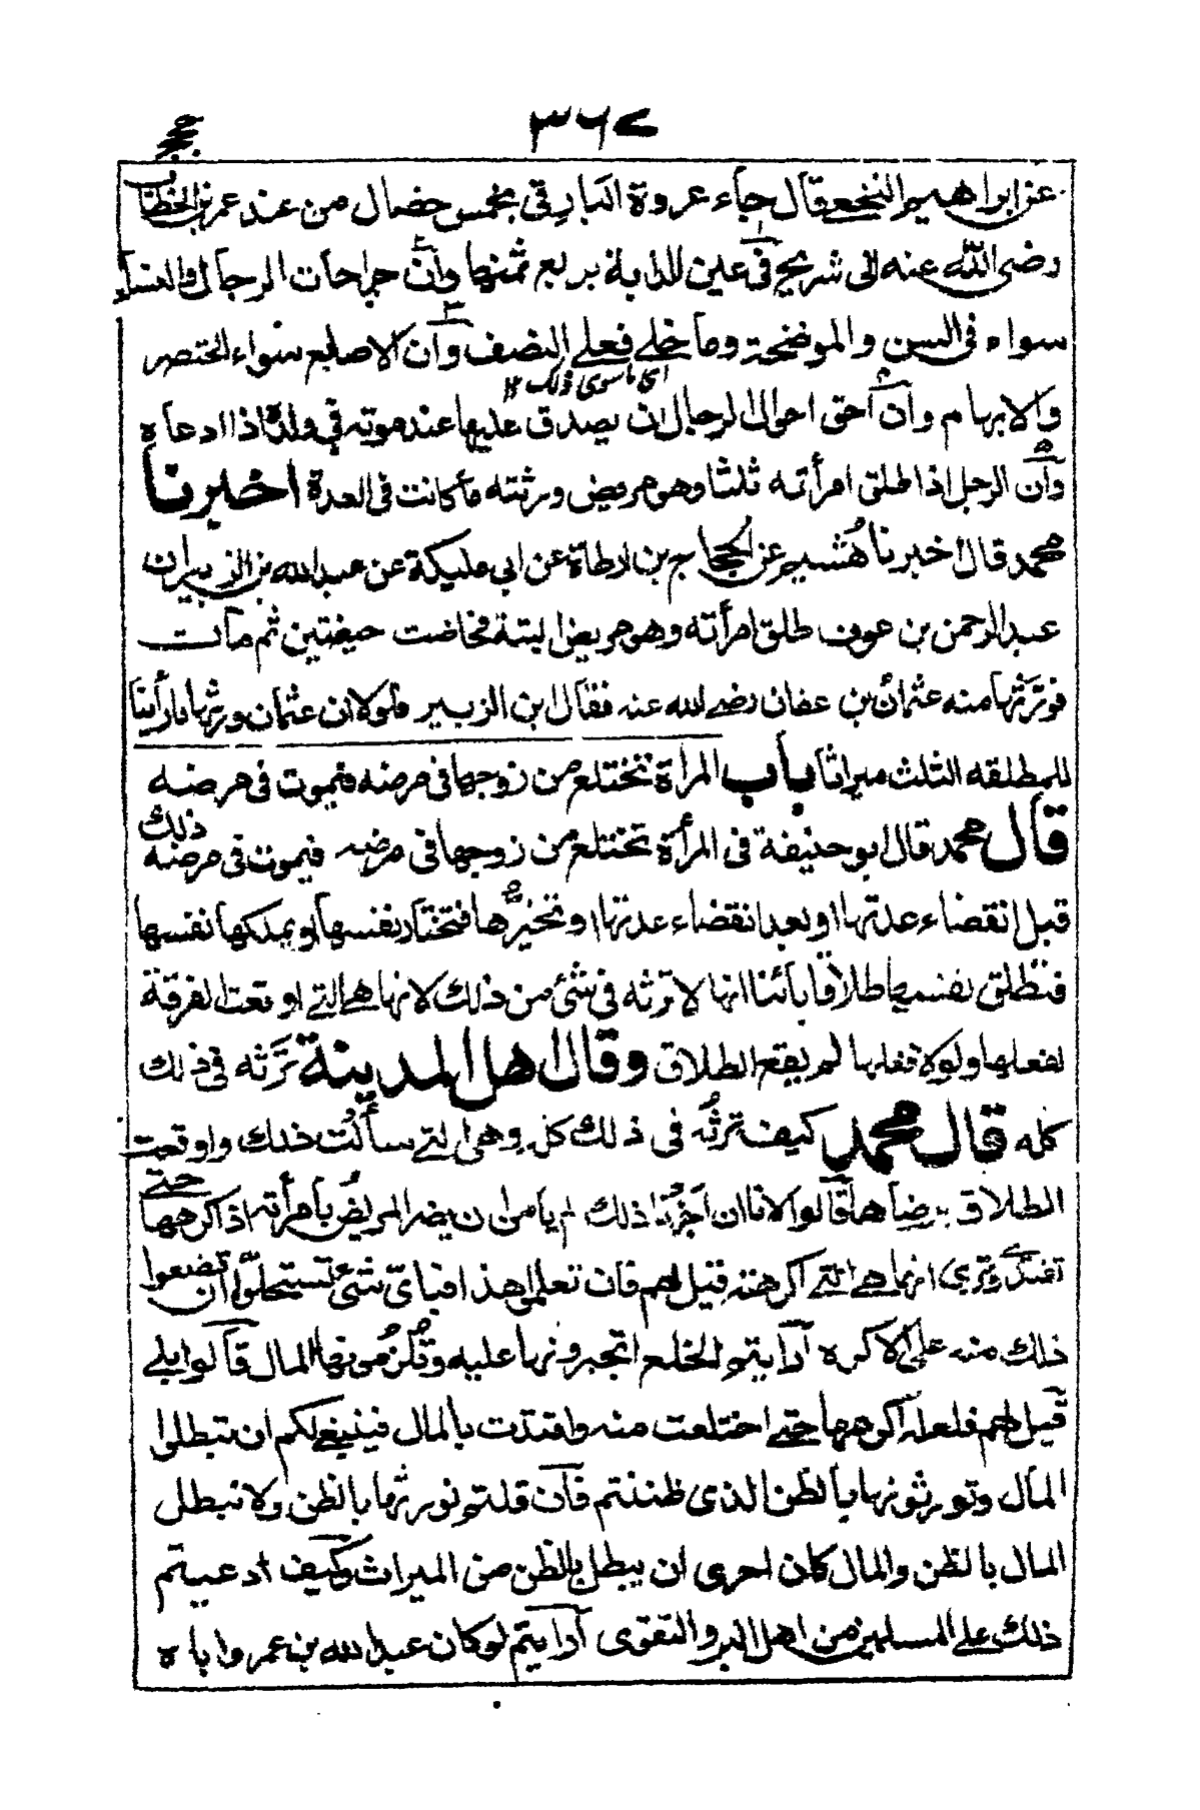 ٣٦٧
حجر
عن ابراهيم النخعي قال جاء عروة البارقي بخمس خصال من عند عمر بن الخطاب
رضي الله عنه الى شريح في عين الدابة بربع ثمنها وان جراحات الرجال والنساء
سواء في السن والموضحة وما خلي فعلي النصف وان الاصابع سواء الخنصر
اي ما سوى ذلك ١٢
والابهام وان احق احوال الرجال ان يصدق عليها عند موته في ولده اذا ادعاه
وان الرجل اذا طلق امرأته ثلثا وهو مريض ورثته ما كانت في العدة اخبرنا
محمد قال اخبرنا هُشيم عن الحجاج بن ارطاة عن ابي مليكة عن عبد الله بن الزبير ان
عبد الرحمن بن عوف طلق امرأته وهو مريض البتة فحاضت حيضتين ثم مات
فورّثها منه عثمان بن عفان رضي الله عنه فقال ابن الزبير فلولا ان عثمان ورثها ما رأينا
للمطلقه الثلث ميراثا باب المرأة تختلع من زوجها في مرضه فيموت في مرضه
قال محمد قال ابو حنيفة في المرأة تختلع من زوجها في مرضه فيموت في مرضه ذلك
قبل انقضاء عدتها او بعد انقضاء عدتها او تخيرها فتختار نفسها او يملكها نفسها
فتطلق نفسها طلاقا بائنا انها لا ترثه في شئ من ذلك لانها هي التي اوقعت الفرقة
بفعلها ولولا فعلها لم يقع الطلاق وقال اهل المدينة ترثه في ذلك
كله قال محمد كيف ترثه في ذلك كله وهي التي سألت ذلك واوقعت
الطلاق برضاها قالوا لانا ان اجزنا ذلك لم يامن ان يضر المريض بامرأته اذا كرهها حتى
تفتدي وترى انها هي التي اكرهته قيل لهم فان تعلموا هذا فباي شئ تستحلون ان تضعوا
ذلك منه على الاكره أرايتم الخلع اتجبرونها عليه وتلزمونها المال قالوا بلى
قيل لهم فلعله اكرهها حتى اختلعت منه وافتدت بالمال فينبغي لكم ان تبطلوا
المال وتورثونها بالظن الذي ظننتم فان قلتم نورثها بالظن ولا نبطل
المال بالظن والمال كان احرى ان يبطل بالظن من الميراث وكيف ادعيتم
ذلك على المسلمين من اهل البر والتقوى أرايتم لو كان عبد الله بن عمر واباه